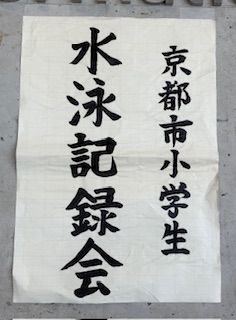 京都市小学生
水泳記録会